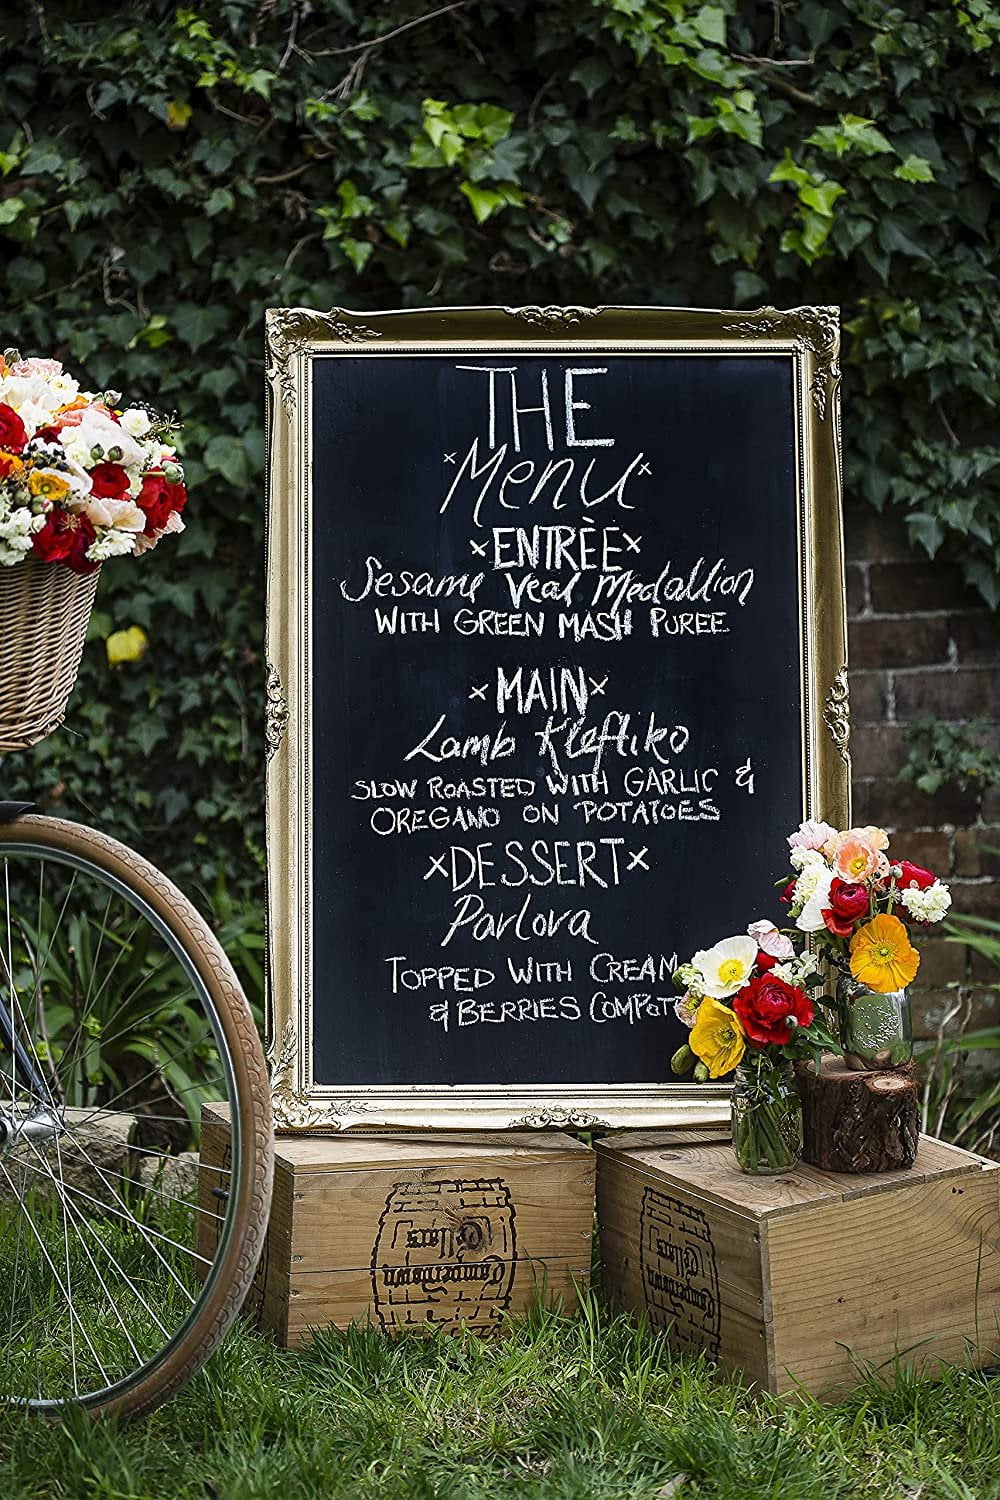 THE
×Menu×
×ENTRÈE×
Sesame Veal Medallion
WITH GREEN MASH PUREE
×MAIN×
Lamb Kleftiko
SLOW ROASTED WITH GARLIC &
OREGANO ON POTATOES
×DESSERT×
Parlova
TOPPED WITH CREAM
& BERRIES COMPOT
Camperdown
Cellars
Camperdown
Cellars